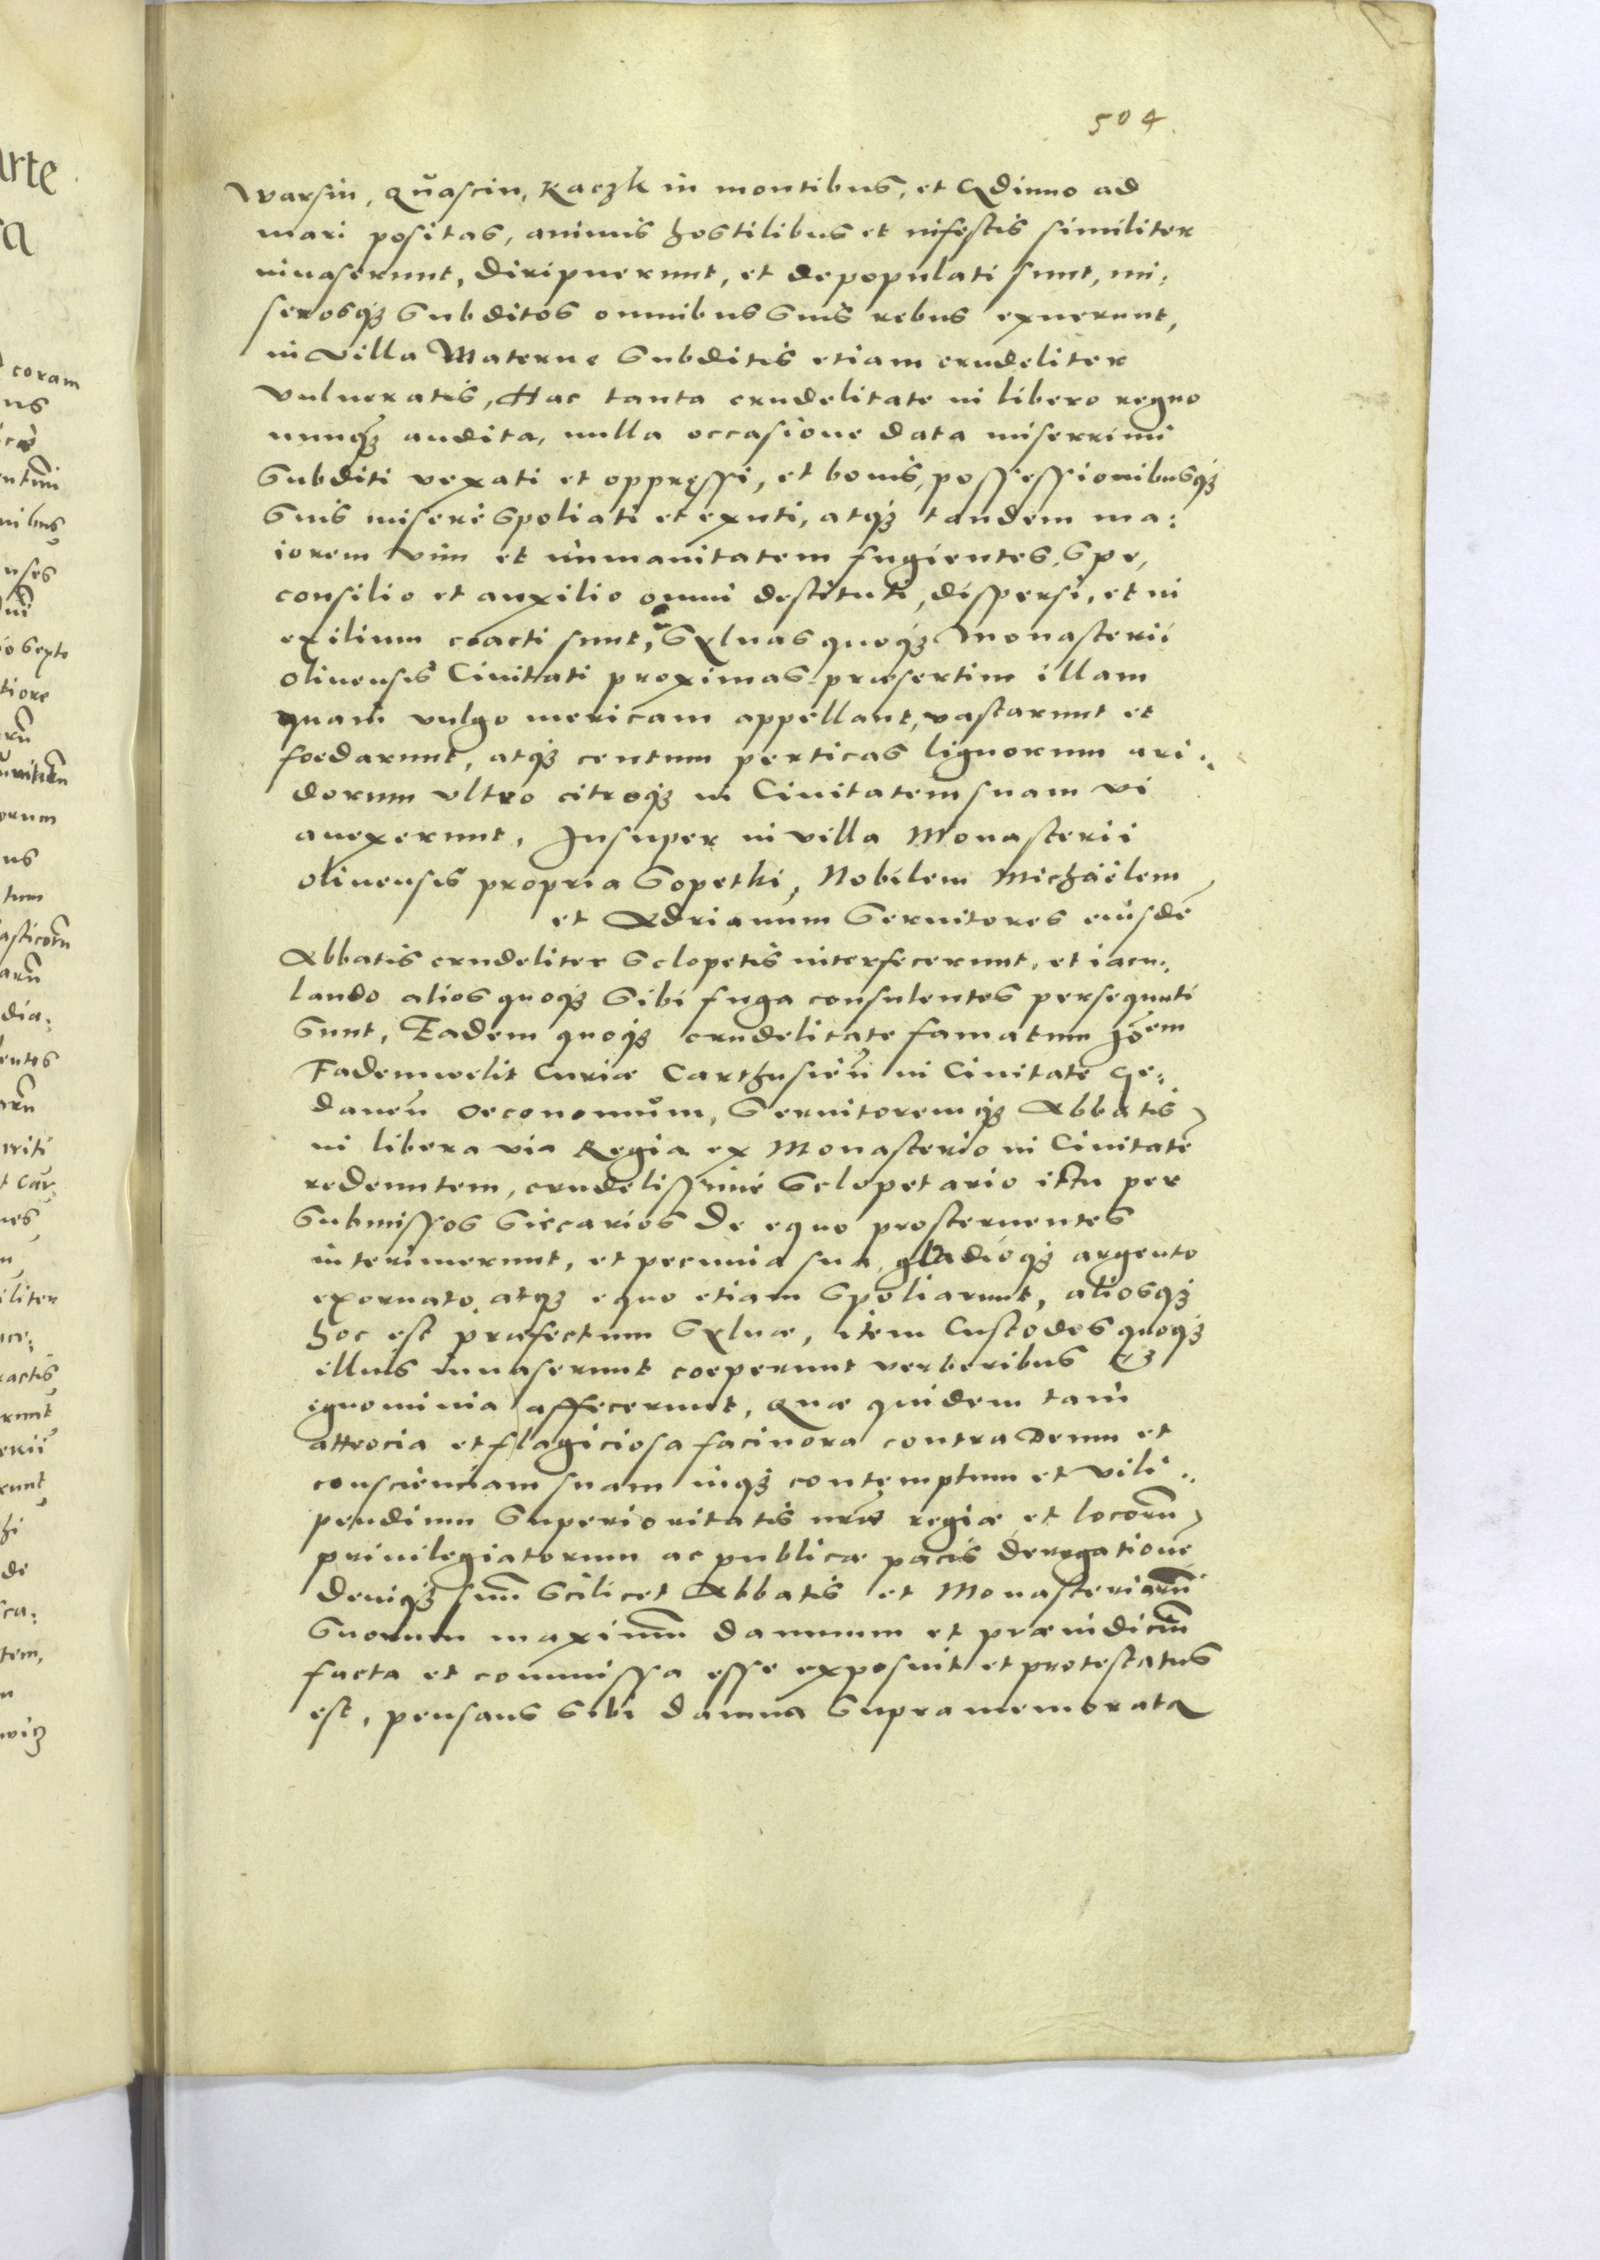 504
Warsin, Quascin, Raczk in montibus, et Gdinno ad
mari positas, animis hostilibus et infestis similiter
inuaserunt, diripuerunt, et depopulati sunt, mi:
serosq3 subditos omnibus suis rebus exuerunt,
in villa Materne subditis etiam crudeliter
vulneratis, Hac tanta crudelitate in libero regno
nunq3 audita, nulla occasione data miserrimi
subditi vexati et oppręssi, et bonis, possessionibusq3
suis miserè spoliati et exuti, atq3 tandem ma:
iorem vim et immanitatem fugientes, spe,
consilio et auxilio omni destituti, dispersi, et in
exilium coacti sunt, Syluas quoq3 Monasterii
oliuensis Ciuitati proximas præsertim illam
quam vulgo mericam appellant, vastarunt et
foedarunt, atq3 centum perticas lignorum ari:
dorum vltro citroq3 in Ciuitatem suam vi
auexerunt, Insuper in villa Monasterii
oliuensis propria Sopethi, Nobilem Michaëlem
et Adrianum seruitores eiusdē
Abbatis crudeliter sclopetis interfecerunt, et iacu:
lando alios quoq3 sibi fuga consulentes persequuti
sunt, Eadem quoq3 crudelitate famatum Joēm
Fademwelit Curiæ Carthusieñ in Ciuitate Ge:
daneñ oeconomum, seruitoremq3 Abbatis
in libera via Regia ex Monasterio in Ciuitatē
redeuntem, crudelissimè sclopetario ictu per
submissos siccarios de equo prosternentes
interimerunt, et pecunia sua, gladioq3 argento
exornato, atq3 equo etiam spoliarunt, aliosq3
hoc est præfectum syluæ, item Custodes quoq3
illuis inuaserunt coeperunt verberibus et
ignominia affecerunt, Quæ quidem tam
attrocia et flagiciosa facinora contra Deum et
conscienciam suam inq3 contemptum et vili:
pendium superioritatis nrae regiæ et locorū
priuilegiatorum ac publicæ pacis derogationē
deniq3 suū scilicet Abbatis et Monasteriorū
suorum maximū damnum et præiudiciū
facta et commissa esse exposuit et protestatus
est, pensans sibi damna supramemorata